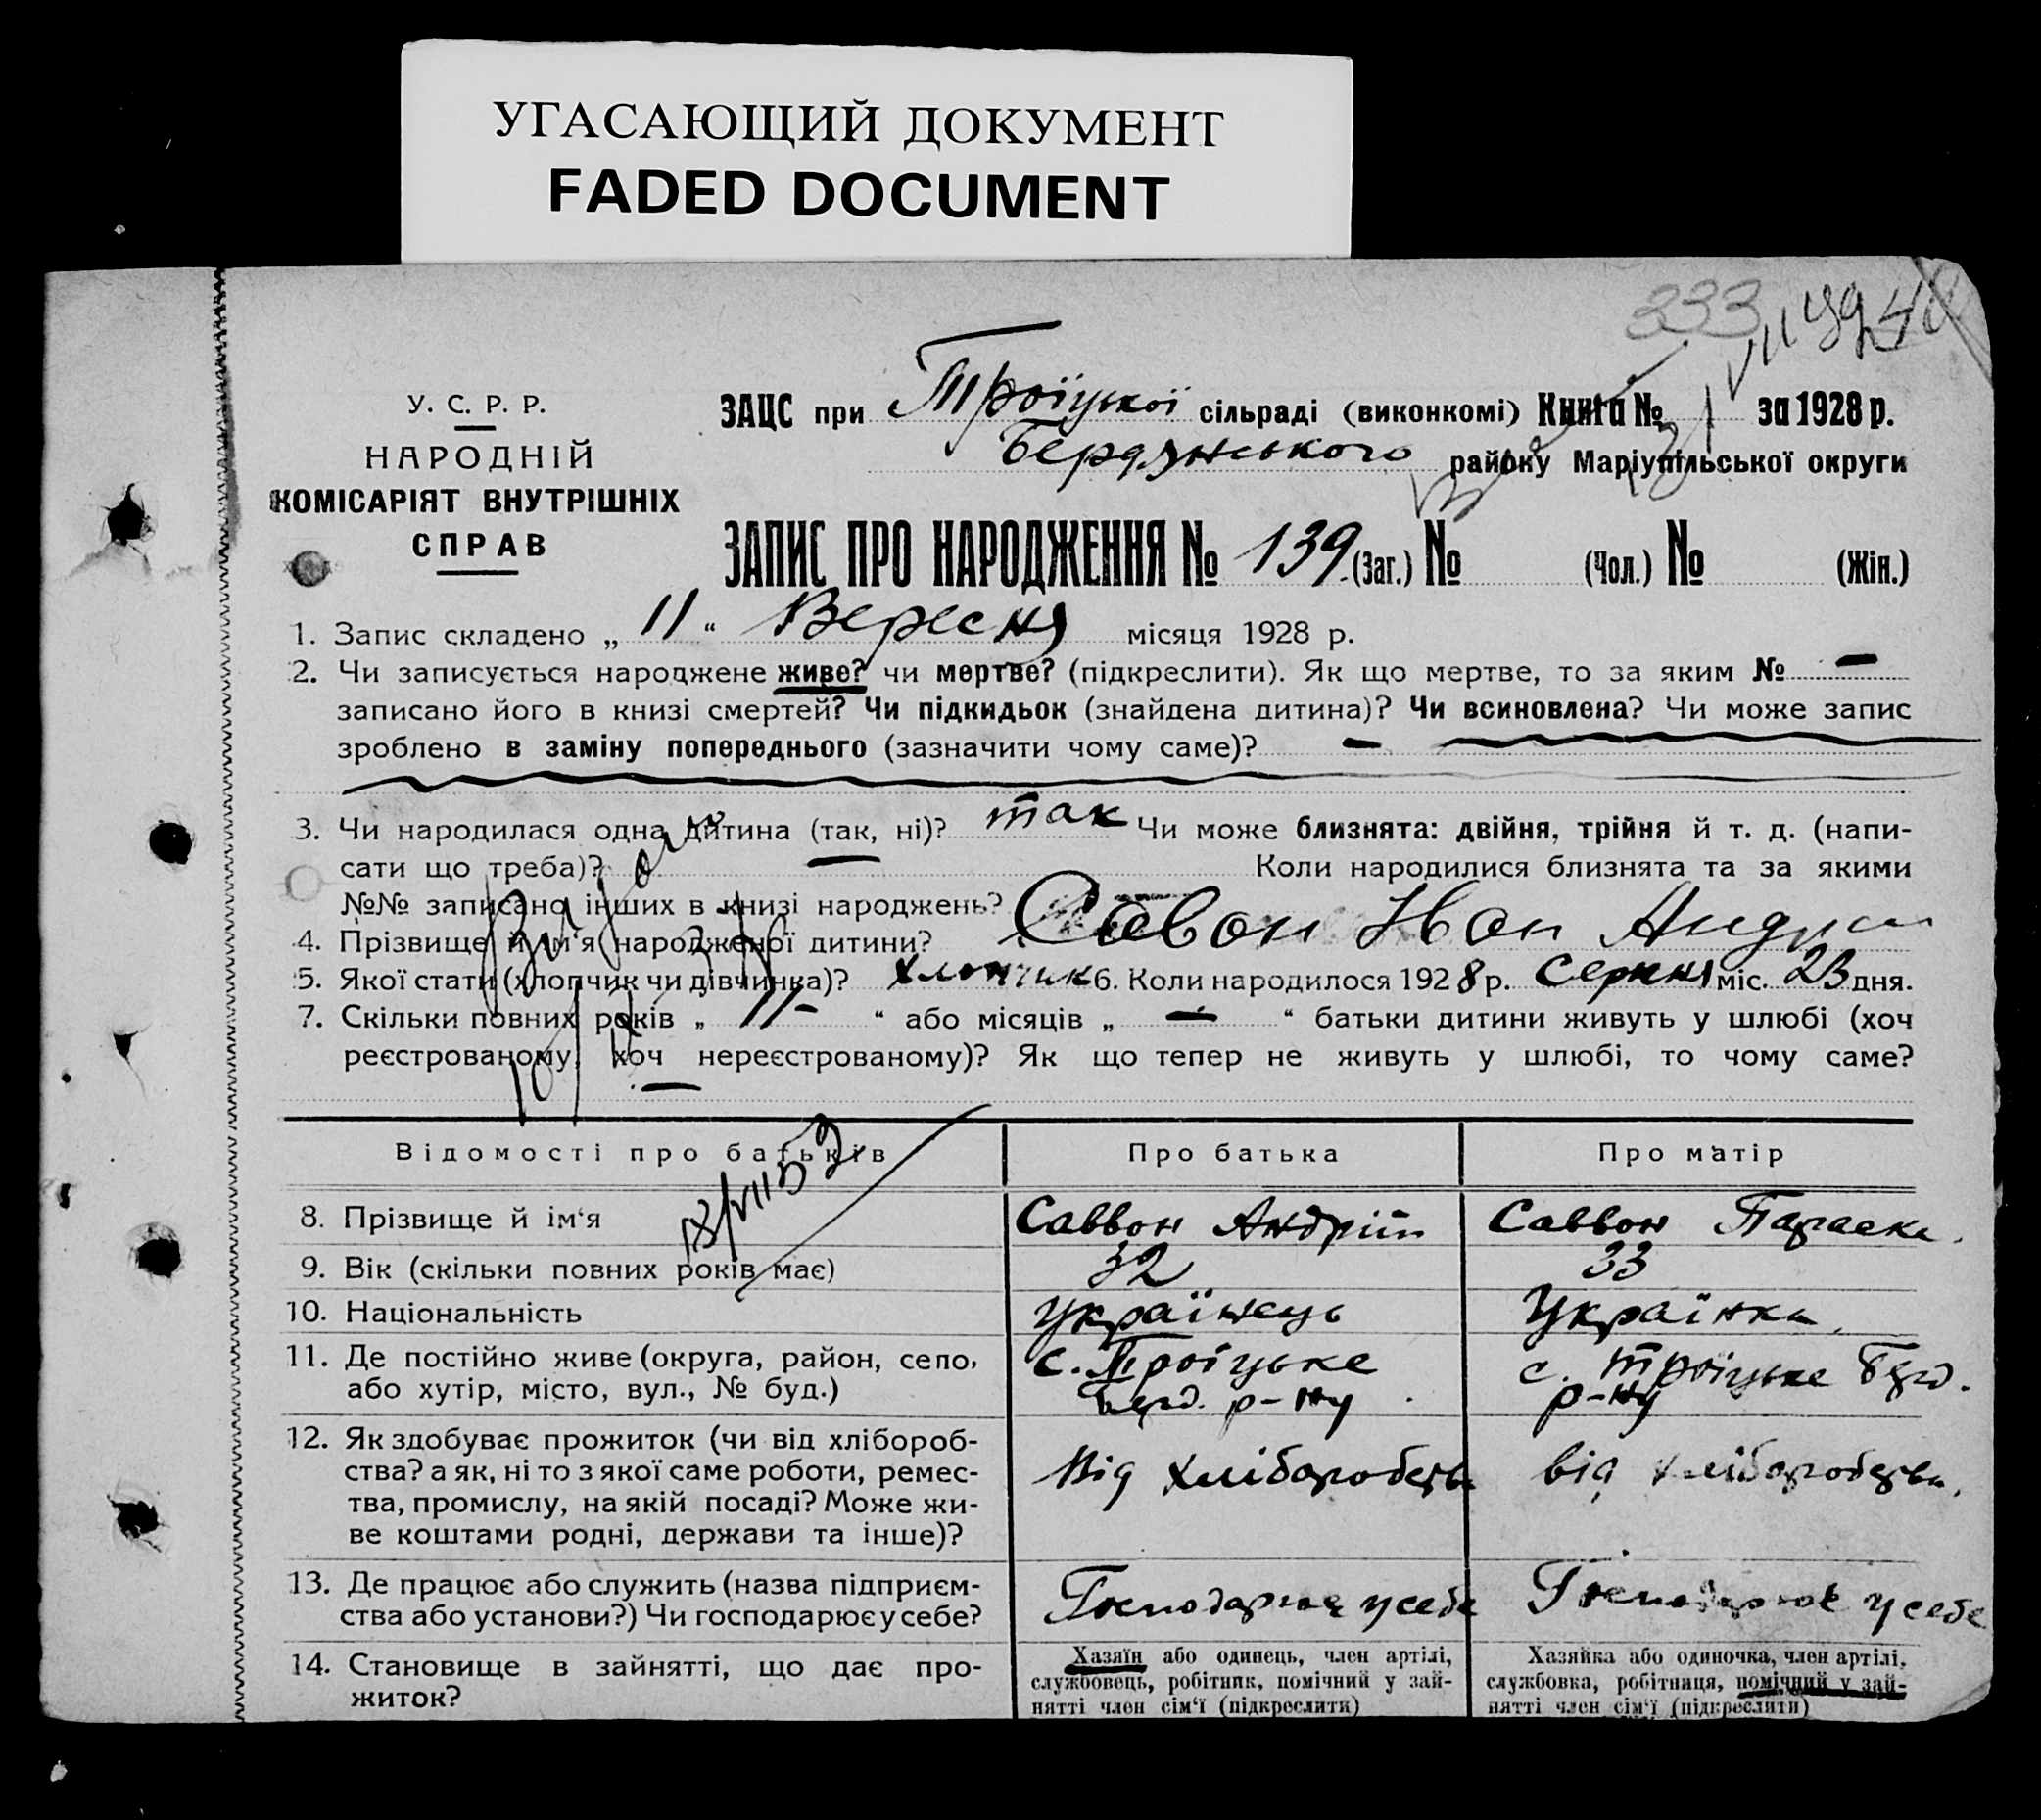 УГАСАЮЩИЙ ДОКУМЕНТ
FADED DOCUMENT
233
У. С. Р. Р.
НАРОДНІЙ
КОМІСАРІЯТ ВНУТРІШНІХ
СПРАВ
ЗАЦС при Троїцької сільраді (виконкомі) Книга № за 1928 р.
Бердянського району Маріупільської округи
ЗАПИС ПРО НАРОДЖЕННЯ № 139 (Заг.) № (Чол.) № (Жін.)
1. Запис складено „ 11 “ Вересня місяця 1928 р.
2. Чи записується народжене живе? чи мертве? (підкреслити). Як що мертве, то за яким № —
записано його в книзі смертей? Чи підкидьок (знайдена дитина)? Чи всиновлена? Чи може запис
зроблено в заміну попереднього (зазначити чому саме)? —
3. Чи народилася одна дитина (так, ні)? так Чи може близнята: двійня, трійня й т. д. (напи-
сати що треба)? Коли народилися близнята та за якими
№№ записано інших в книзі народжень?
4. Прізвище й ім‘я народженої дитини? Савон Иван Андри
5. Якої стати (хлопчик чи дівчинка)? хлопчик 6. Коли народилося 1928 р. серпня міс. 23 дня.
7. Скільки повних років „ 11 - “ або місяців „ — “ батьки дитини живуть у шлюбі (хоч
реєстрованому, хоч нереєстрованому)? Як що тепер не живуть у шлюбі, то чому саме?
Відомості про батьків Про батька Про матір
8. Прізвище й ім‘я Саввон Андрій Саввон Параска
9. Вік (скільки повних років має) 32 33
10. Національність Українець Українка
11. Де постійно живе (округа, район, село, с. Троїцьке с. Троїцьке Берд.
або хутір, місто, вул., № буд.) Берд. р-ну р-ну
12. Як здобуває прожиток (чи від хлібороб-
ства? а як, ні то з якої саме роботи, ремес- Від хліборобства від хліборобства
тва, промислу, на якій посаді? Може жи-
ве коштами родні, держави та інше)?
13. Де працює або служить (назва підприєм-
ства або установи?) Чи господарює у себе? Господарює у себе Господарює у себе
14. Становище в зайнятті, що дає про-
житок?
Хазяїн або одинець, член артілі,
службовець, робітник, помічний у зай-
нятті член сім‘ї (підкреслити)
Хазяйка або одиночка, член артілі,
службовка, робітниця, помічний у зай-
нятті член сім‘ї (підкреслити)